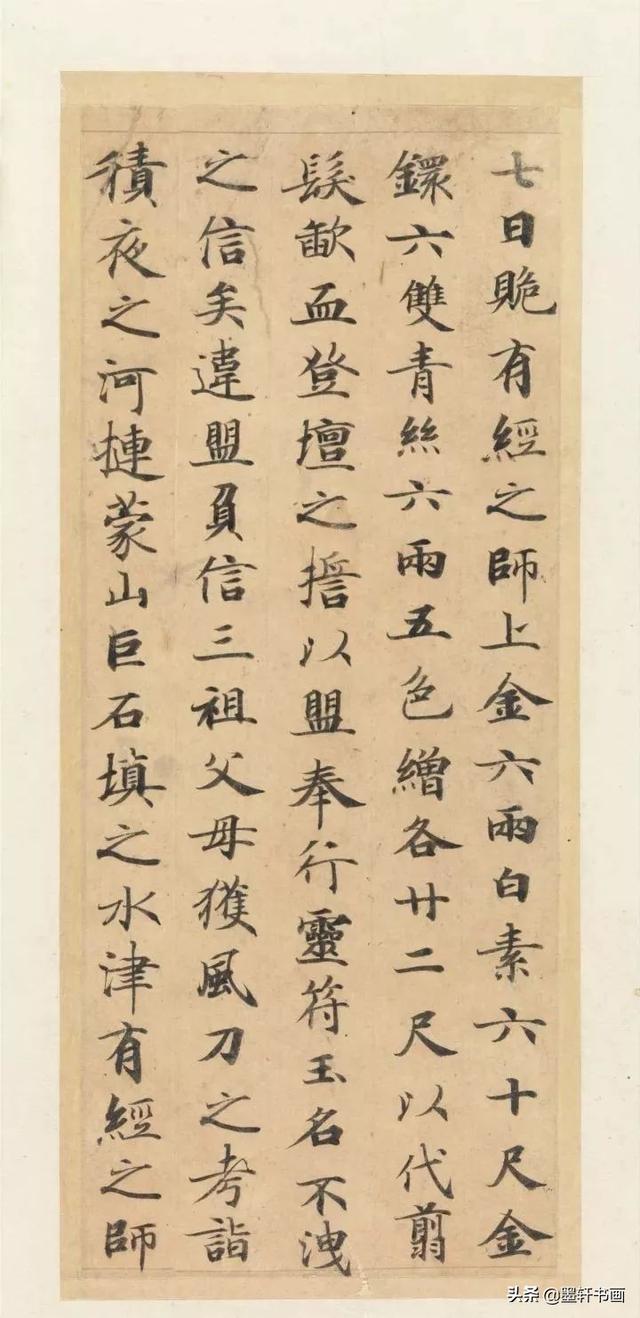 七日貹有經之師上金六兩白素六十尺金
鐶六雙青絲六兩五色繒各廿二尺以代翦
髮歃血登壇之誓以盟奉行靈符玉名不洩
之信矣違盟負信三祖父母獲風刀之考詣
積夜之河摙蒙山巨石填之水津有經之師
头条 @墨轩书画